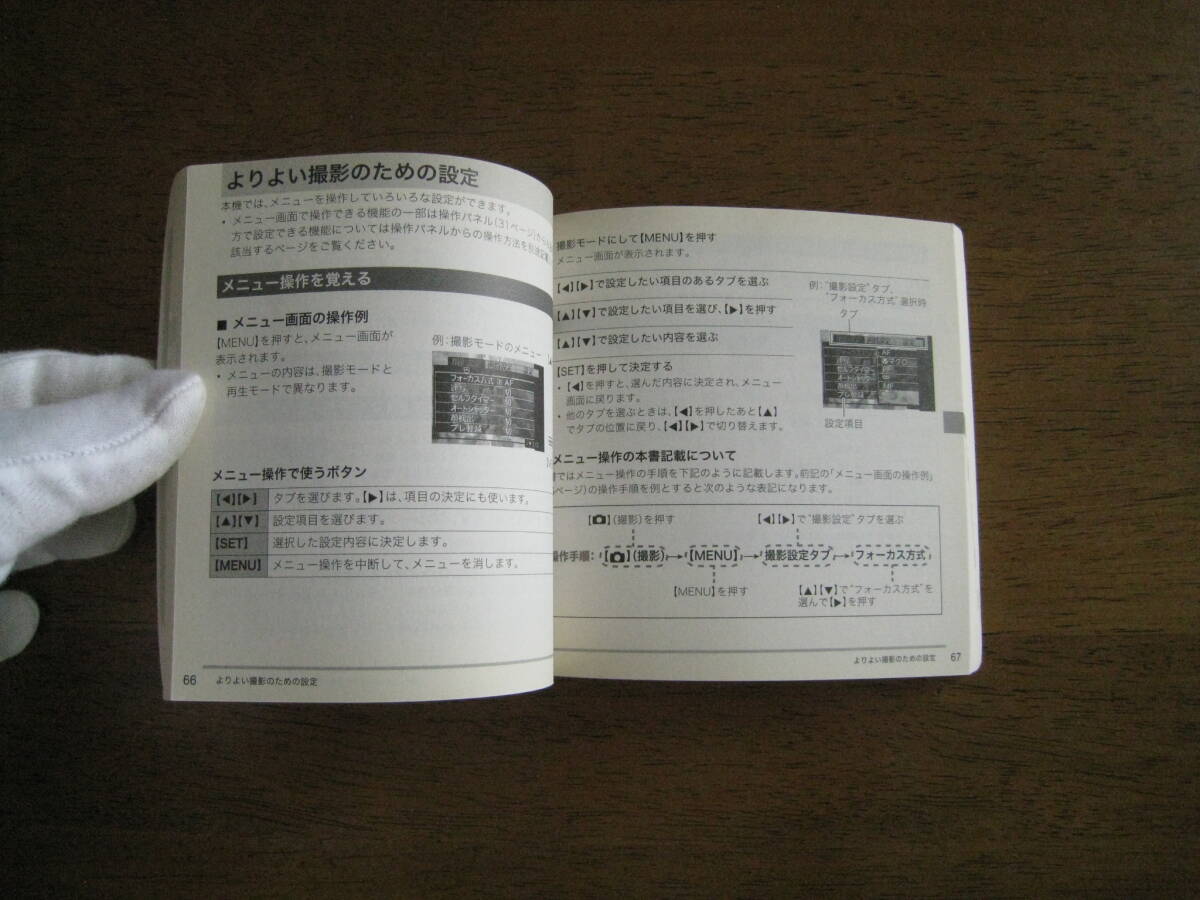 よりよい撮影のための設定
本機では、メニューを操作していろいろな設定ができます。
• メニュー画面で操作できる機能の一部は操作パネル(31ページ)から
方で設定できる機能については操作パネルからの操作方法を
該当するページをご覧ください。
メニュー操作を覚える
■ メニュー画面の操作例
【MENU】を押すと、メニュー画面が
表示されます。
• メニューの内容は、撮影モードと
再生モードで異なります。
例：撮影モードのメニュー
フォーカス方式 AF
連写 切
セルフタイマー 切
オートシャッター 切
顔検出 切
ブレ軽減 切
メニュー操作で使うボタン
【◀】【▶】 タブを選びます。【▶】は、項目の決定にも使います。
【▲】【▼】 設定項目を選びます。
【SET】 選択した設定内容に決定します。
【MENU】 メニュー操作を中断して、メニューを消します。
66 よりよい撮影のための設定
撮影モードにして【MENU】を押す
メニュー画面が表示されます。
【◀】【▶】で設定したい項目のあるタブを選ぶ
【▲】【▼】で設定したい項目を選び、【▶】を押す
【▲】【▼】で設定したい内容を選ぶ
【SET】を押して決定する
• 【◀】を押すと、選んだ内容に決定され、メニュー
画面に戻ります。
• 他のタブを選ぶときは、【◀】を押したあと【▲】
でタブの位置に戻り、【◀】【▶】で切り替えます。
例：“撮影設定”タブ、
“フォーカス方式”選択時
タブ
AF
マクロ
セルフタイマー
設定項目
メニュー操作の本書記載について
ではメニュー操作の手順を下記のように記載します。前記の「メニュー画面の操作例」
ページ)の操作手順を例とすると次のような表記になります。
【📷】(撮影)を押す
【◀】【▶】で“撮影設定”タブを選ぶ
操作手順：【📷】(撮影)→【MENU】→撮影設定タブ→フォーカス方式
【MENU】を押す
【▲】【▼】で“フォーカス方式”を
選んで【▶】を押す
よりよい撮影のための設定 67